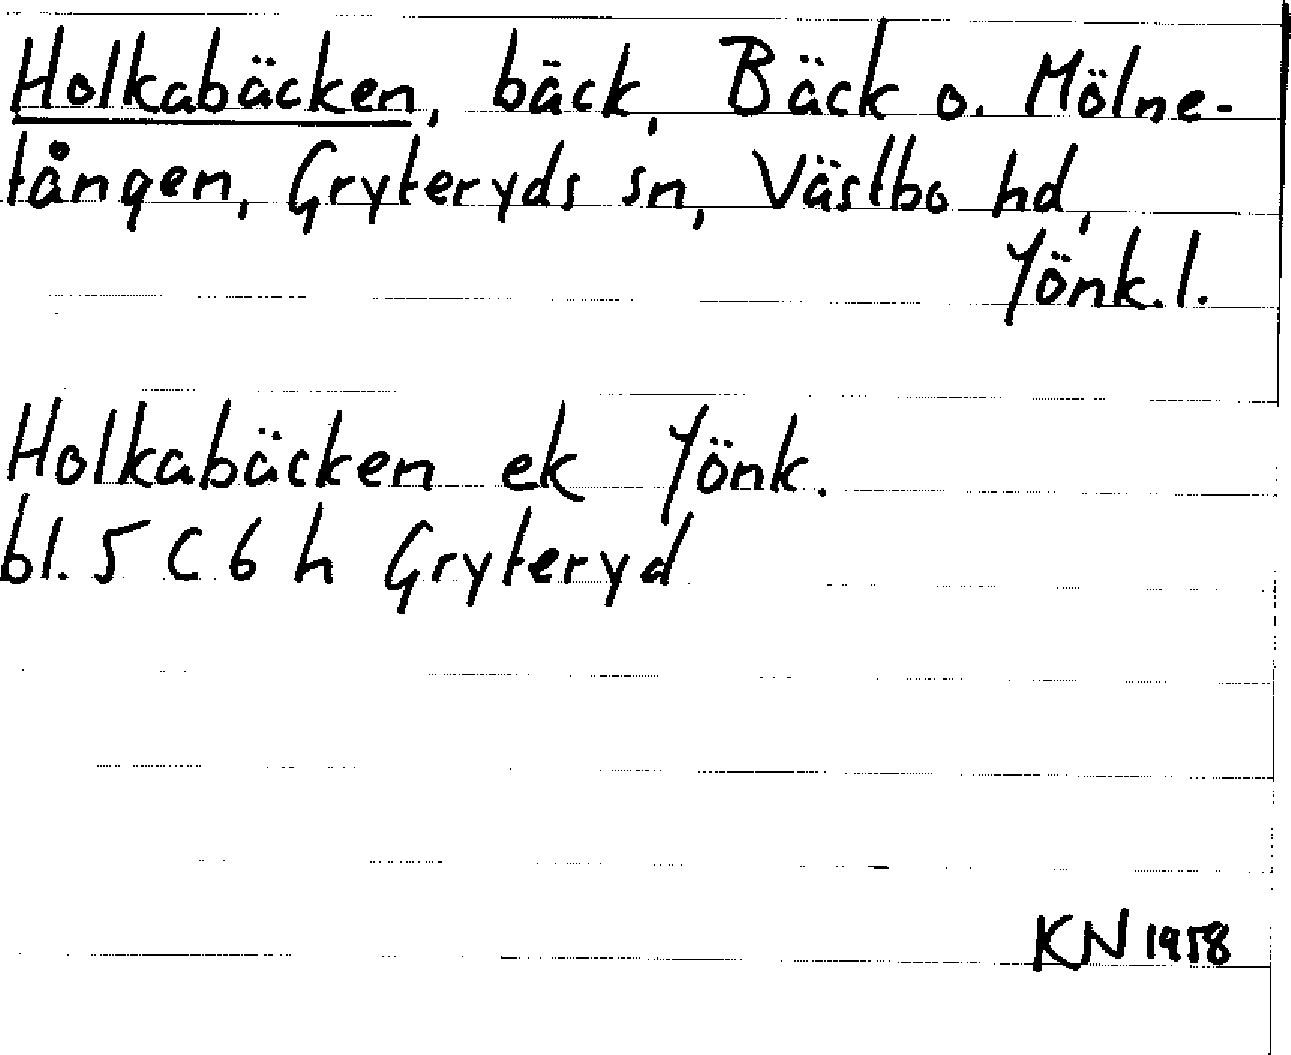 Holkabäcken, bäck, Bäck o. Mölne-
tången, Gryteryds sn, Västbo hd,
Jönk. l.
Holkabäcken ek Jönk.
bl. 5 C 6 h Gryteryd
KN 1958